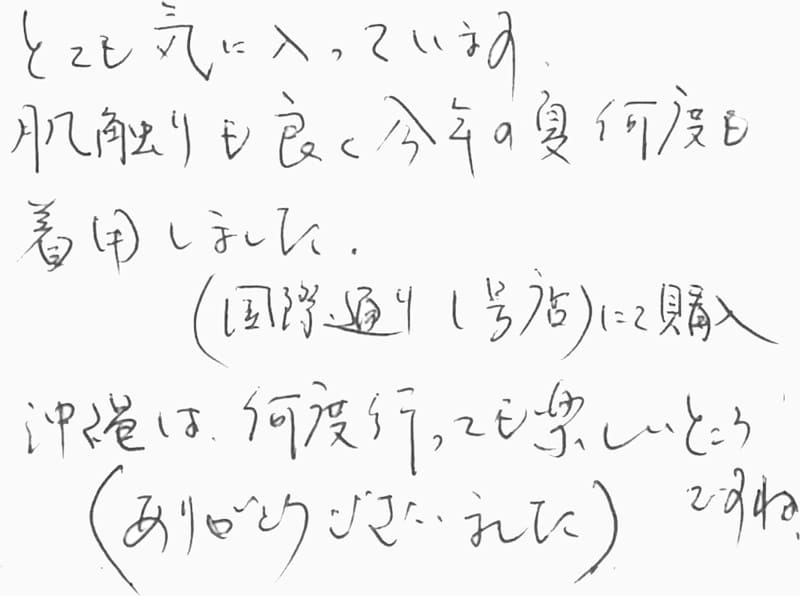 とても気に入っています.
肌触りも良く今年の夏何度も
着用しました.
(国際通り1号店)にて購入
沖縄は、何度行っても楽しいところ
ですね.
(ありがとうございました)